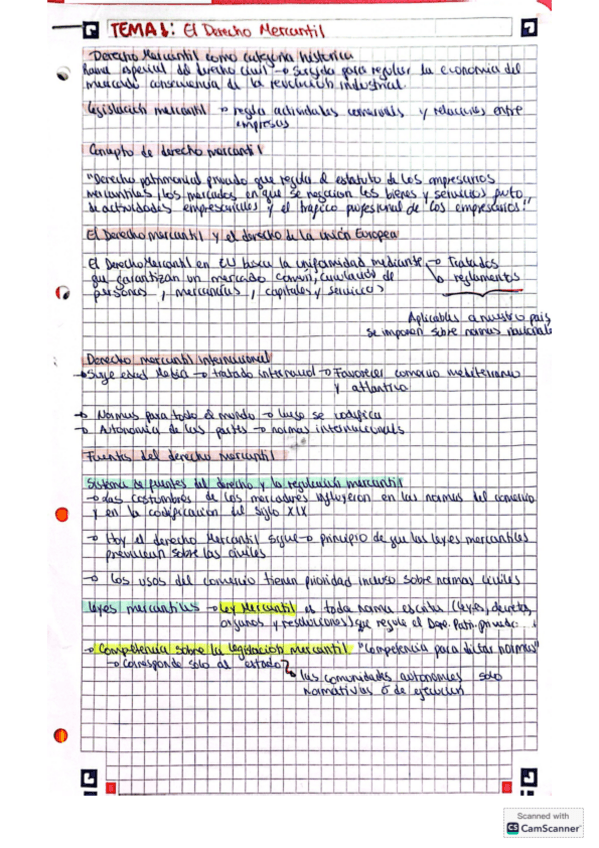 TEMA 1: El Derecho Mercantil
Derecho Mercantil como categoría histórica
Rama especial del derecho civil → Surgida para regular la economía del
mercado consecuencia de la revolución industrial.
Legislación mercantil → regla actividades comerciales y relaciones entre
empresas
Concepto de derecho mercantil
"Derecho patrimonial privado que regula el estatuto de los empresarios
mercantiles, los mercados en que se negocian los bienes y servicios
de actividades empresariales y el tráfico profesional de los empresarios."
El Derecho mercantil y el derecho de la Unión Europea
El Derecho Mercantil en EU busca la uniformidad mediante → Tratados
que garantizan un mercado común, circulación de → reglamentos
personas, mercancías, capitales y servicios
Aplicables a nuestro país
Se imponen sobre normas nacionales
Derecho mercantil internacional
→ Surge edad Media → tratado internacional → Favorecer comercio mediterraneo
y atlantico
→ Normas para todo el mundo → luego se codifica
→ Autonomía de las partes → normas internacionales
Fuentes del derecho mercantil
Sistema de fuentes del derecho y la regulación mercantil
→ Las costumbres de los mercaderes influyeron en las normas del comercio
y en la codificación del siglo XIX
→ Hoy el derecho Mercantil sigue → principio de que las leyes mercantiles
prevalecen sobre las civiles
→ Los usos del comercio tienen prioridad incluso sobre normas civiles
Leyes mercantiles → Ley Mercantil es toda norma escrita (leyes, decretos,
organos y resoluciones) que regule el Dere. Patri. privado.
→ Competencia sobre la legislación mercantil "Competencia para dictar normas"
→ Corresponde solo al estado
las comunidades autonomas solo
normativas o de ejecucion
Scanned with
CS CamScanner